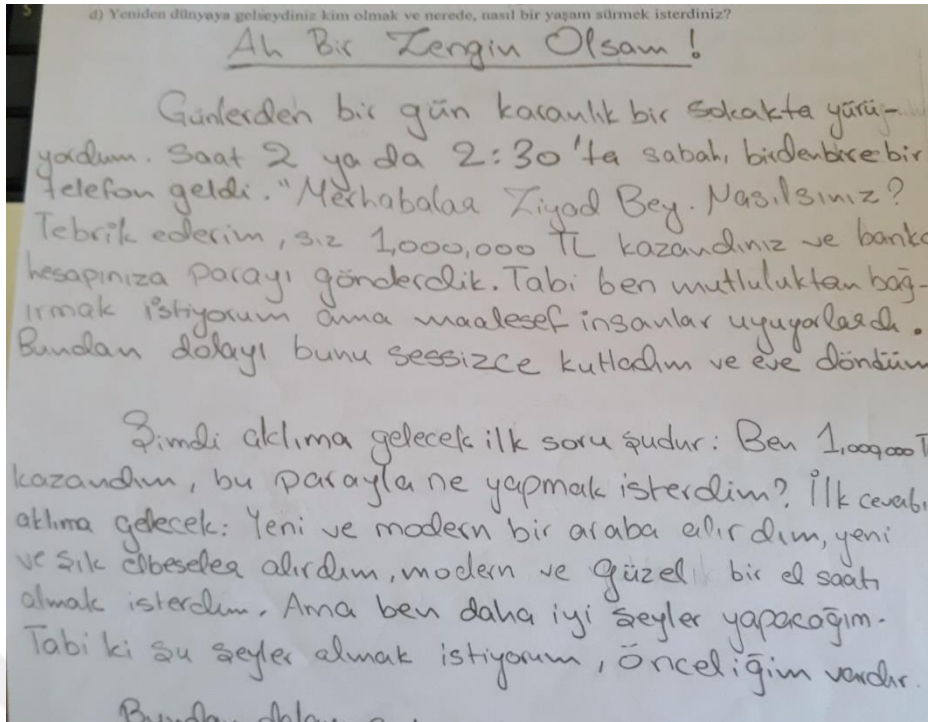 d) Yeniden dünyaya gelseydiniz kim olmak ve nerede, nasıl bir yaşam sürmek isterdiniz?
Ah Bir Zengin Olsam !
Günlerden bir gün karanlık bir sokakta yürü-
yordum. Saat 2 ya da 2:30'ta sabah, birdenbire bir
telefon geldi. "Merhabalar Ziyad Bey. Nasılsınız?
Tebrik ederim, siz 1,000,000 TL kazandınız ve banka
hesapınıza parayı gönderdik. Tabi ben mutluluktan bağ-
ırmak istiyorum ama maalesef insanlar uyuyorlardı.
Bundan dolayı bunu sessizce kutladım ve eve döndüm
Şimdi aklıma gelecek ilk soru şudur: Ben 1,000,000 T
kazandım, bu parayla ne yapmak isterdim? İlk cevabı
aklıma gelecek: Yeni ve modern bir araba alırdım, yeni
ve şık elbeseler alırdım, modern ve güzel bir el saatı
almak isterdim. Ama ben daha iyi şeyler yapacağım.
Tabi ki şu şeyler almak istiyorum, önceliğim vardır.
Bundan